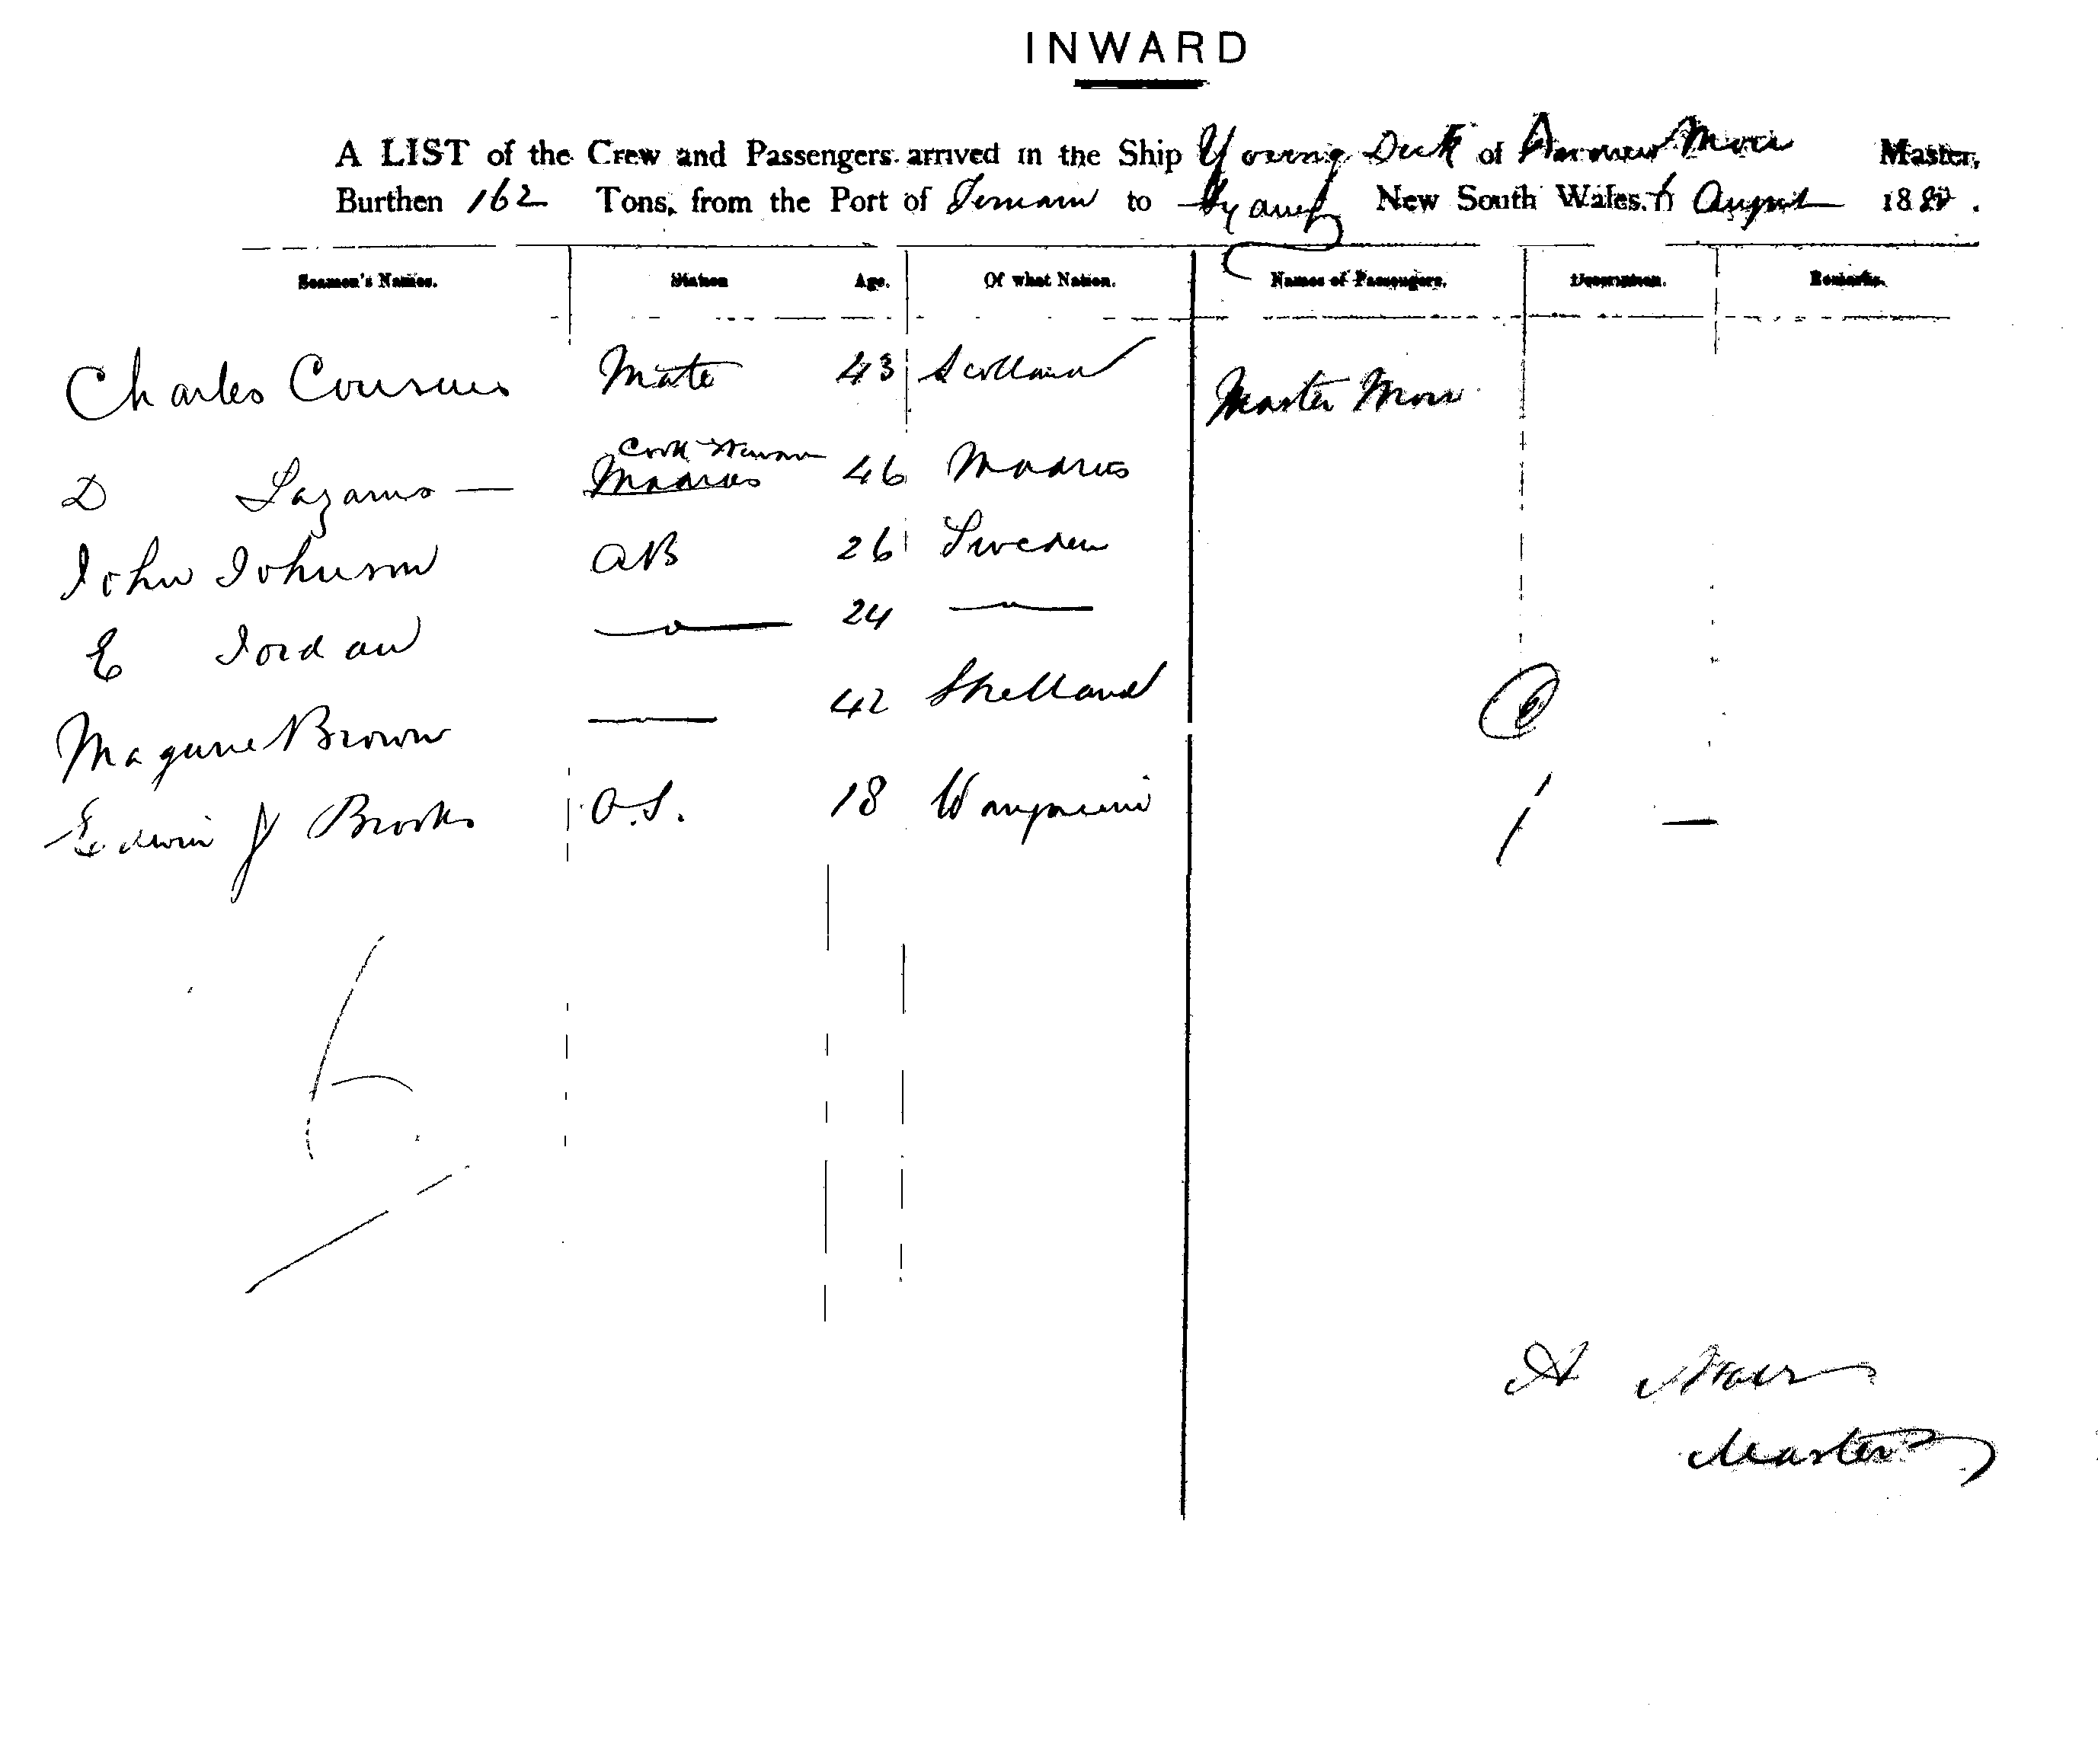 INWARD
A LIST of the Crew and Passengers arrived in the Ship Young Dick of Andrew Moir Master,
Burthen 162 Tons, from the Port of to Sydney New South Wales, August 18
Seamen's Names. Station Age. Of what Nation. Names of Passengers. Description. Remarks.
Charles Cousins Mate 43 Scotland Master Moir
Cook Steward
D Lazarus — Madras 46 Madras
John Johnson AB 26 Sweden
E Jordan — 24 —
Brown — 42 Shetland
Edwin J Brooks O.S. 18
6
A Moir
Master